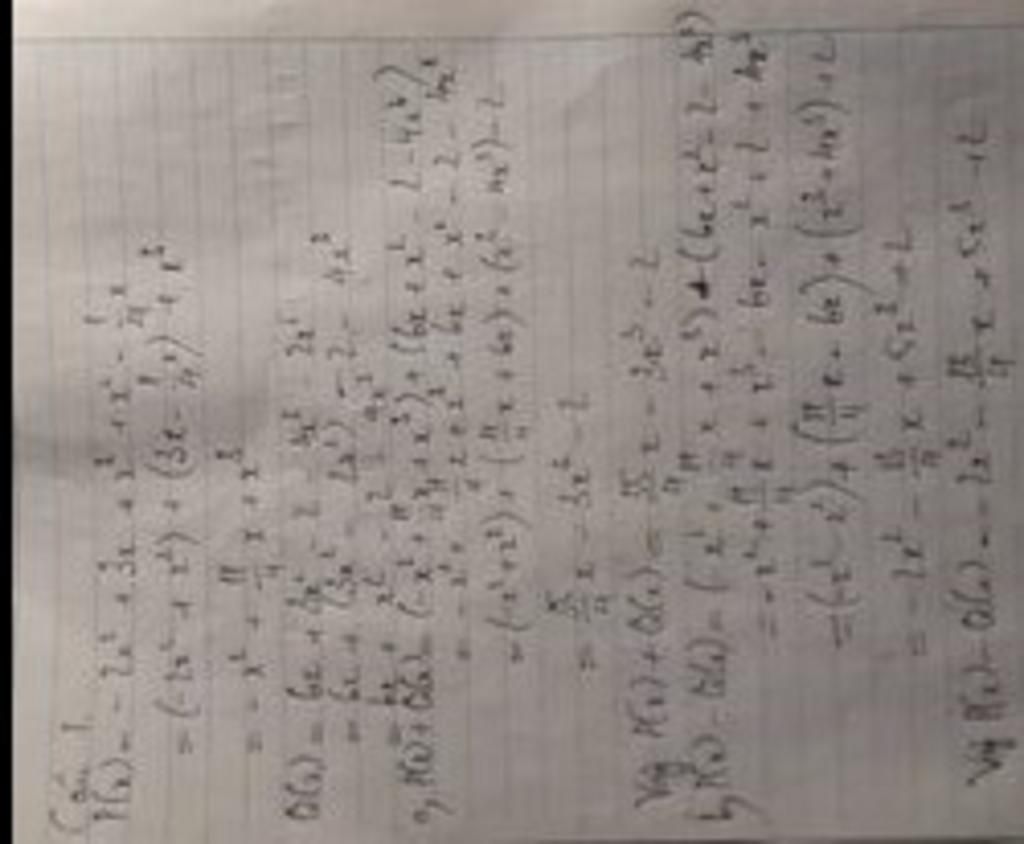 Câu 1
P(x) = - 2x² + 3x + x³ + x² - 1/4 x
= (-2x² + x²) + (3x - 1/4 x) + x³
= - x² + 11/4 x + x³
Q(x) = 6x + 3x² - 2 - 4x³ - 2x²
= 6x + (3x² - 2x²) - 2 - 4x³
= 6x + x² - 2 - 4x³
a, P(x) + Q(x) = (-x² + 11/4 x + x³) + (6x + x² - 2 - 4x³)
= - x² + 11/4 x + x³ + 6x + x² - 2 - 4x³
= (-x² + x²) + (11/4 x + 6x) + (x³ - 4x³) - 2
= 35/4 x - 3x³ - 2
Vậy P(x) + Q(x) = 35/4 x - 3x³ - 2
b, P(x) - Q(x) = (-x² + 11/4 x + x³) - (6x + x² - 2 - 4x³)
= - x² + 11/4 x + x³ - 6x - x² + 2 + 4x³
= (-x² - x²) + (11/4 x - 6x) + (x³ + 4x³) + 2
= - 2x² - 13/4 x + 5x³ + 2
Vậy P(x) - Q(x) = - 2x² - 13/4 x + 5x³ + 2